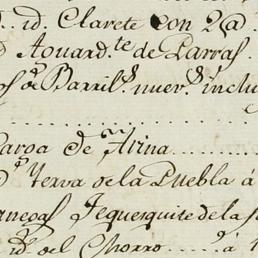 id. Clarete con 2@
Aguard.te de Parras.
q.s de Barril.s nuev.s inclu
Carga de Arina
Yerva de la Puebla á
Tequesquite de la
id. del Chorro á